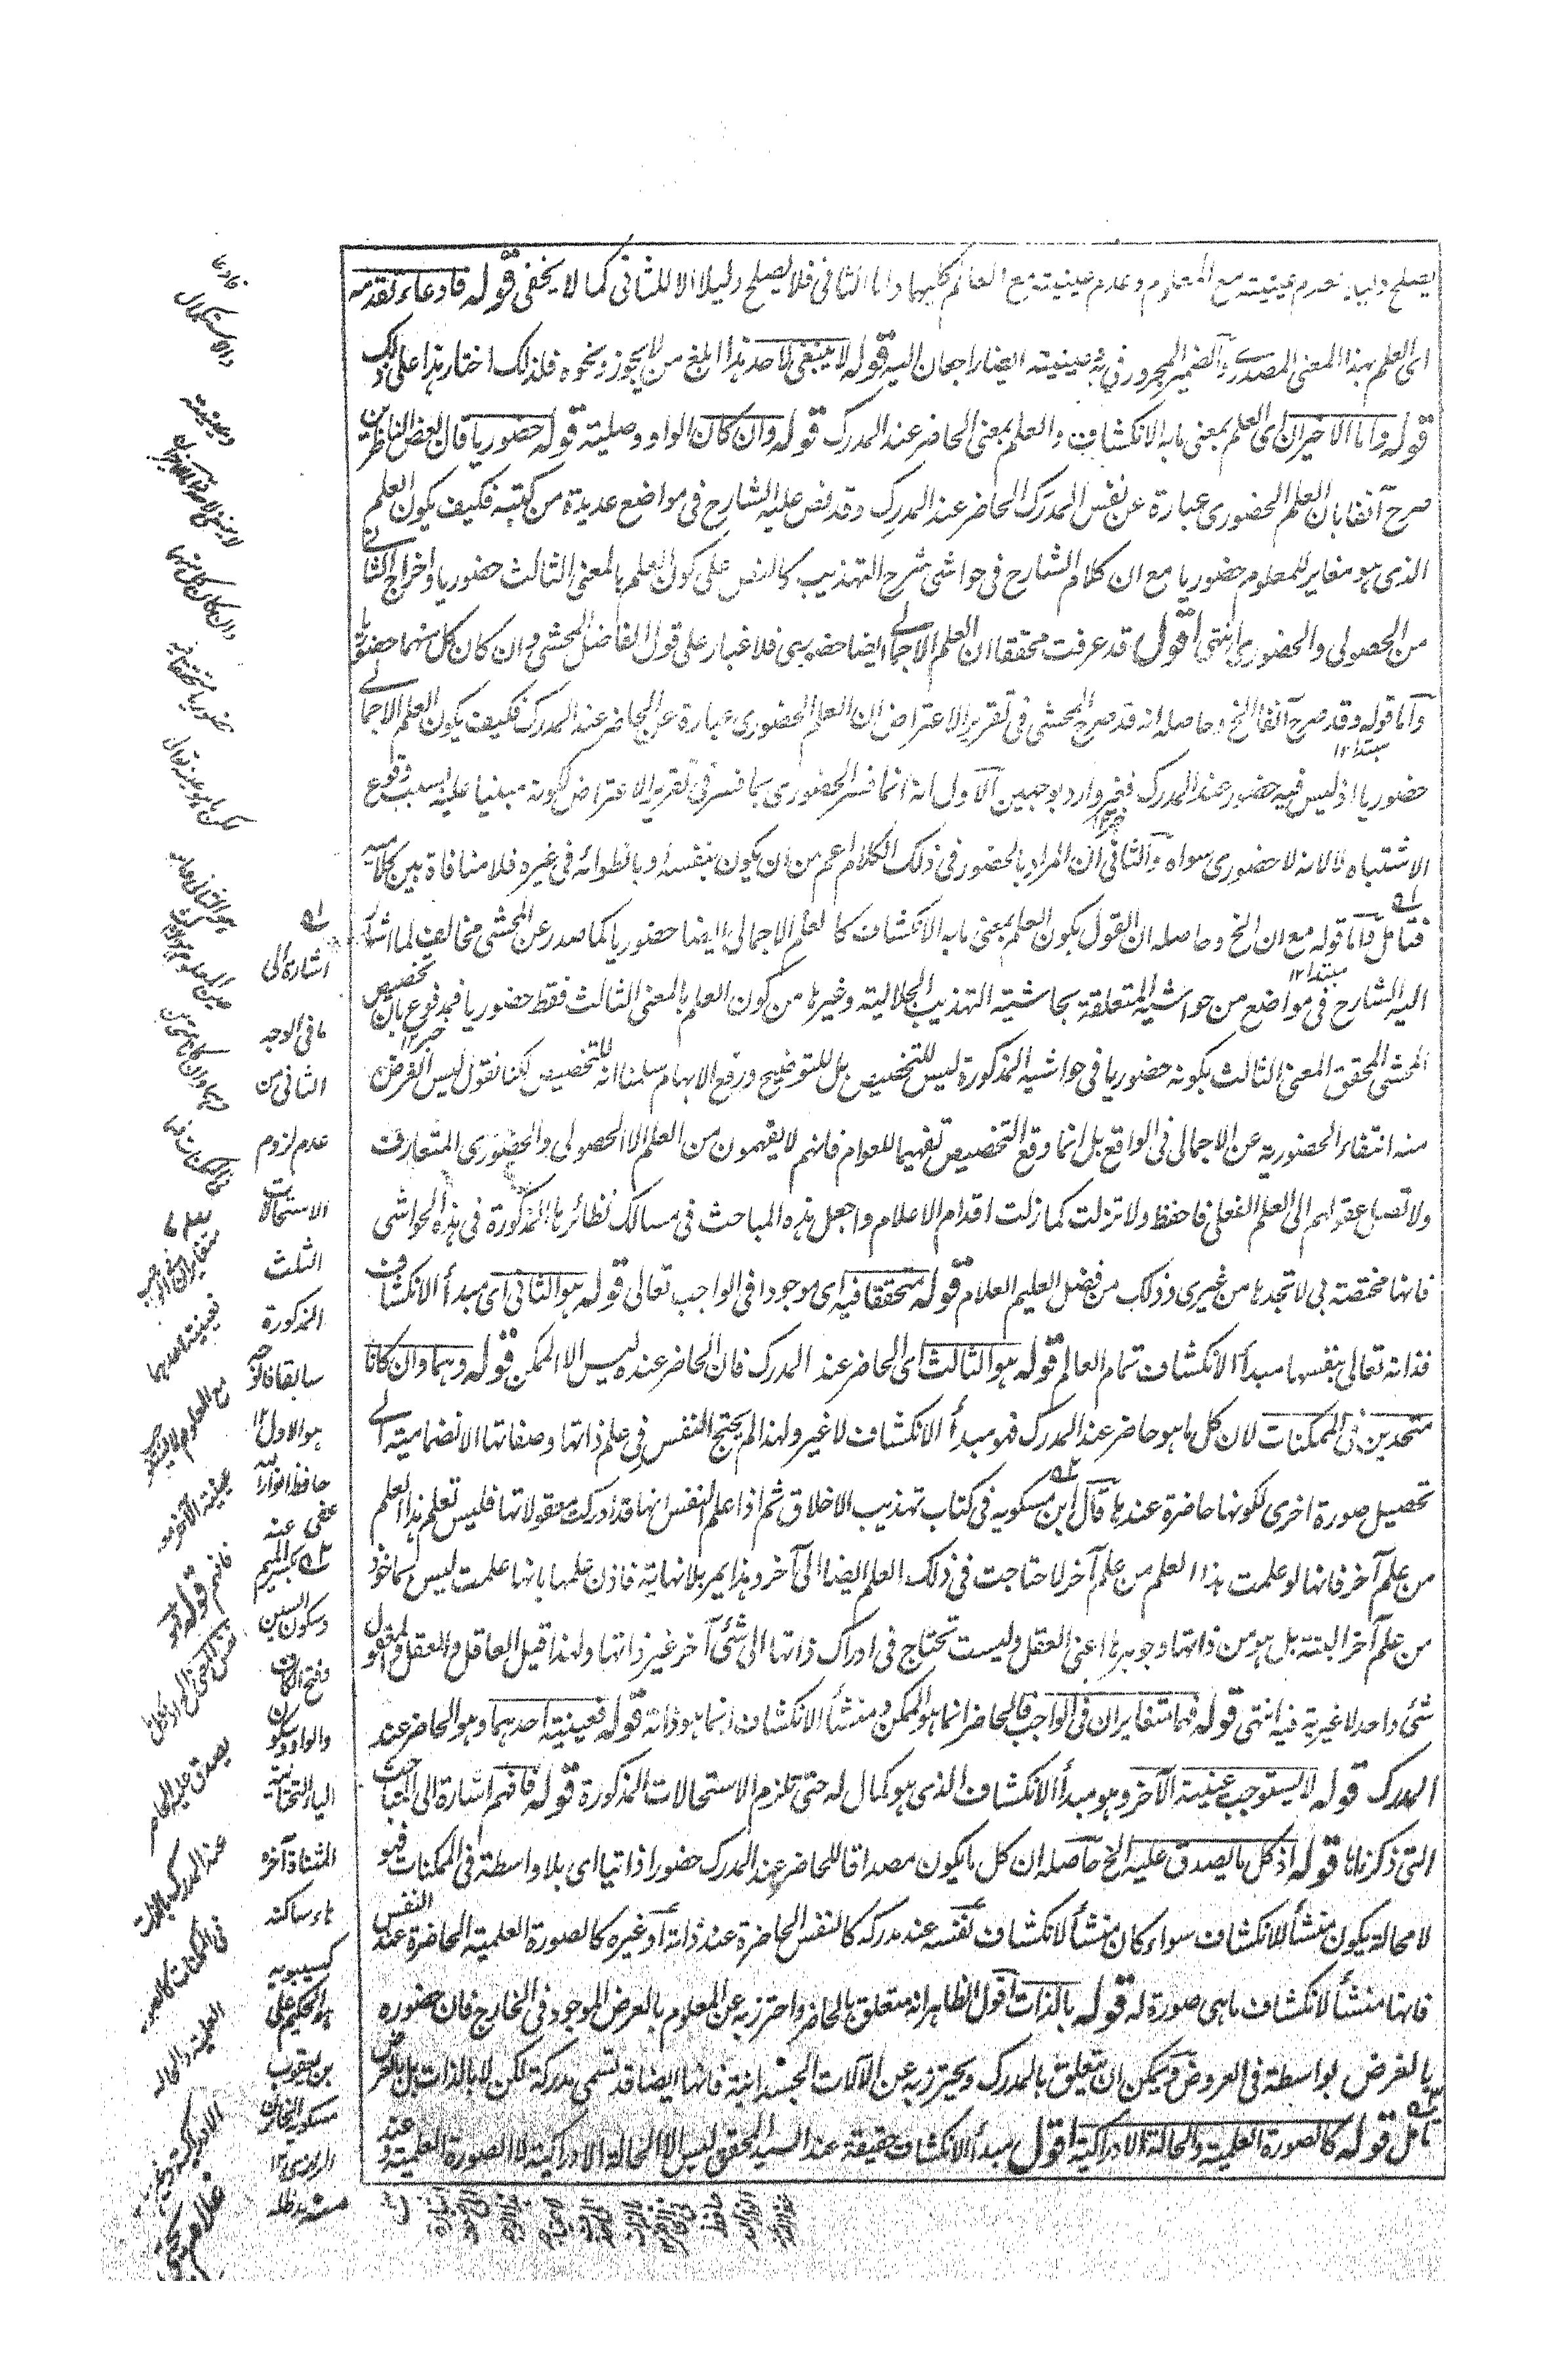 يصلح دليلا لعدم عينيته مع المعلوم وعدم عينيته مع العالم كليهما واما الثاني فلا يصلح دليلا الا للثاني كما لا يخفى قوله فادعاء تقدمه
اى العلم بهذا المعنى المصدرى والضمير المجرور في عينيته ايضا راجعان اليه قوله لا ينبغي لاحد هذا ابلغ من لا يجوز ونحوه فلذلك اختار هذا على ذلك
قوله واما الاخيران اى العلم بمعنى ما به الانكشاف والعلم بمعنى الحاضر عند المدرك قوله وان كان الواو وصلية قوله حضوريا قال بعض الناظرين
صرح آنفا بان العلم الحضورى عبارة عن نفس المدرك الحاضر عند المدرك وقد نص عليه الشارح في مواضع عديدة من كتبه فكيف يكون العلم
الذى هو مغاير للمعلوم حضوريا مع ان كلام الشارح في حواشى شرح التهذيب كالنص على كون العلم بالمعنى الثالث حضوريا واخراج الثانى
من الحصولى والحضورى انتهى اقول قد عرفت محققا ان العلم الاجمالى ايضا حضورى فلا غبار على قول الفاضل المحشى وان كان كل منهما حضوريا
واما قوله وقد صرح آنفا الخ وحاصله انه قد صرح المحشى في تقرير الاعتراض ان العلم الحضورى عبارة عن الحاضر عند المدرك فكيف يكون العلم الاجمالى
مبتدا ١٢
حضوريا اذ ليس فيه حضور عند المدرك فغير وارد بوجهين الاول انه انما فسر الحضورى بما فسر في تقرير الاعتراض لكونه مبنيا عليه بسبب وقوع
خبر ١٢
الاشتباه لا لانه لا حضورى سواه والثانى ان المراد بالحضور في ذلك الكلام اعم من ان يكون بنفسه او بانطوائه في غيره فلا منافاة بين كلاميه
فتامل واما قوله مع ان الخ وحاصله ان القول بكون العلم بمعنى ما به الانكشاف كالعلم الاجمالى ايضا حضوريا كما صدر عن المحشى مخالف لما اشار
مبتدا ١٢
اليه الشارح في مواضع من حواشيه المتعلقة بحاشية التهذيب الجلالية وغيرها من كون العلم بالمعنى الثالث فقط حضوريا فمدفوع بان تخصيص
خبر ١٢
المحشى المحقق المعنى الثالث بكونه حضوريا في حواشيه المذكورة ليس للتخصيص بل للتوضيح ورفع الابهام سلمنا انه للتخصيص لكنا نقول ليس الغرض
منه انتفاء الحضورية عن الاجمالى في الواقع بل انما وقع التخصيص تفهيما للعوام فانهم لا يفهمون من العلم الا الحصولى والحضورى المتعارف
ولا تصل عقولهم الى العلم الفعلى فاحفظ ولا تزلت كما زلت اقدام الاعلام واجعل هذه المباحث في مسالك نظائرها المذكورة في هذه الحواشى
فانها مختصة بى لا تجدها من غيرى وذلك من فضل العليم العلام قوله متحققا فيه اى موجودا في الواجب تعالى قوله هو الثانى اى مبدأ الانكشاف
فذاته تعالى بنفسها مبدأ الانكشاف تمام العالم قوله هو الثالث اى الحاضر عند المدرك فان الحاضر عنده ليس الا الممكن قوله وهما وان كانا
متحدين في الممكنات لان كل ما هو حاضر عند المدرك فهو مبدأ الانكشاف لا غير ولهذا لم يحتج النفس في علم ذاتها وصفاتها الانضمامية الى
تحصيل صورة اخرى لكونها حاضرة عندها قال ابن مسكويه في كتاب تهذيب الاخلاق ثم اذا علم النفس انها قد ادركت معقولاتها فليس تعلم هذا العلم
من علم آخر فانها لو علمت هذا العلم من علم آخر لاحتاجت في ذلك العلم ايضا الى آخر وهذا يمر بلا نهاية فاذن علمها بانها علمت ليس ماخوذ
من علم آخر البتة بل هو من ذاتها وجوهرها اعنى العقل وليست تحتاج في ادراك ذاتها الى شئ آخر غير ذاتها ولهذا قيل العاقل والعقل والمعقول
شئ واحد لا غيرية فيه انتهى قوله فهما متغايران في الواجب فالحاضر انما هو الممكن ومنشأ الانكشاف انما هو ذاته قوله فعينية احدهما وهو الحاضر عند
المدرك قوله لا يستوجب عينية الآخر وهو مبدأ الانكشاف الذى هو كمال له حتى تلزم الاستحالات المذكورة قوله فافهم اشارة الى المباحث
التى ذكرناها قوله اذ كل ما يصدق عليه الخ حاصله ان كل ما يكون مصداقا للحاضر عند المدرك حضورا ذاتيا اى بلا واسطة في الممكنات فهو
لا محالة يكون منشأ للانكشاف سواء كان منشأ لانكشاف نفسه عند مدركه كالنفس الحاضرة عند ذاته او غيره كالصورة العلمية الحاضرة عند النفس
فانها منشأ لانكشاف ما هى صورة له قوله بالذات اقول الظاهر انه متعلق بالحاضر واحترز به عن المعلوم بالعرض الموجود في الخارج فان حضوره
بالعرض بواسطة في العروض ويمكن ان يتعلق بالمدرك ويحترز به عن الآلات الجسدانية فانها ايضا قد تسمى مدركة لكن لا بالذات بل بالعرض
تامل قوله كالصورة العلمية والحالة الادراكية اقول مبدأ الانكشاف حقيقة عند السيد المحقق ليس الا الحالة الادراكية لا الصورة العلمية وعند
اشارة الى
ما في الوجه
الثانى من
عدم لزوم
الاستحالات
الثلث
المذكورة
سابقا
هو الاول ١٢
حافظ
عفى عنه
بكسر الميم
وسكون السين
وفتح الكاف
والواو وسكون
الياء التحتانية
المثناة آخره
هاء ساكنة
كسيبويه
بن يعقوب
مسكويه الخازن
الرازى ١٢
منه مد ظله
متغايران
فعينية احدهما
مع المعلوم لا يستوجب
عينية الآخر
فافهم قوله
يصدق عليه الحاضر
عند المدرك بالذات
في الممكنات كالصورة
العلمية والحالة
الادراكية
غلام يحيى